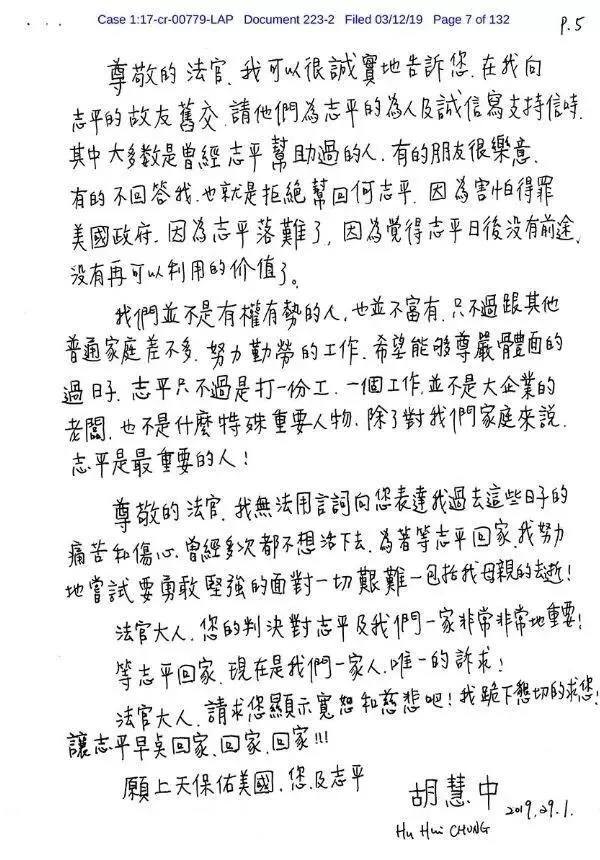 Case 1:17-cr-00779-LAP Document 223-2 Filed 03/12/19 Page 7 of 132
P.5
尊敬的法官、我可以很誠實地告訴您、在我向
志平的故友舊交、請他們為志平的為人及誠信寫支持信時、
其中大多数是曾經志平幫助過的人、有的朋友很樂意、
有的不回答我、也就是拒絕幫回何志平、因為害怕得罪
美國政府、因為志平落難了、因為覺得志平日後没有前途、
没有再可以利用的价值了。
我們並不是有權有勢的人、也並不富有、只不過跟其他
普通家庭差不多、努力勤勞的工作、希望能够尊嚴體面的
過日子、志平只不過是打一份工、一個工作、並不是大企業的
老闆、也不是什麼特殊重要人物、除了對我們家庭來説、
志平是最重要的人!
尊敬的法官、我無法用言詞向您表達我過去這些日子的
痛苦和傷心、曾經多次都不想活下去、為著等志平回家、我努力
地嘗試要勇敢堅強的面對一切艱難—包括我母親的去逝!
法官大人、您的判決對志平及我們一家非常非常地重要!
等志平回家、現在是我們一家人、唯一的訴求!
法官大人、請求您顯示寬恕和慈悲吧!我跪下懇切的求您!
讓志平早點回家、回家、回家!!!
願上天保佑美國、您、及志平
胡慧中
2019.29.1.
Hu Hui CHUNG